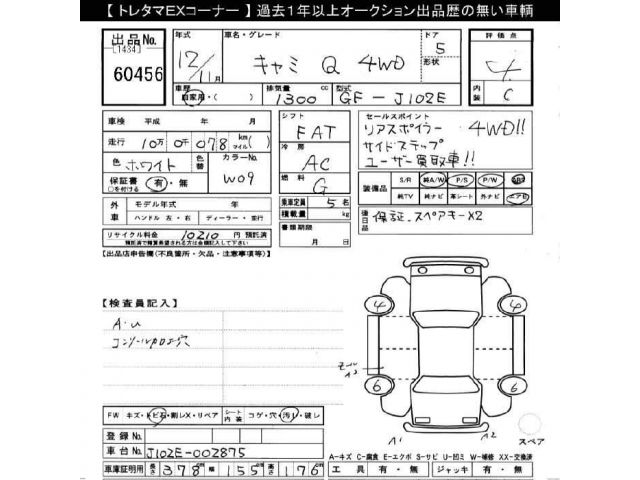 【 トレタマEXコーナー 】過去1年以上オークション出品歴の無い車輌
出品No. [1434] 60456
年式 12/11月 車名・グレード キャミ Q 4WD ドア 5 形状
評価点 4 内装 C
車歴 自家用・( ) 排気量 1300 cc 型式 GF-J102E
車検 平成 年 月
走行 10万0千078 km/マイル( )
色 ホワイト 色替 カラーNo. W09
保証書 ○を付ける 有・無
シフト FAT
冷房 AC
燃料 G
セールスポイント
リアスポイラー 4WD!!
サイドステップ
ユーザー買取車!!
装備品 S/R 純A/W P/S P/W
純TV 純ナビ 革シート 外ナビ
外車 モデル年式 年
ハンドル 左・右 ディーラー・並行
乗車定員 5 名
積載量 kg
後日品 保証.スペアキーX2
リサイクル料金 10210 円 預託済
預託済で精算希望される方は金額記入して下さい
書類期限 月 日
【出品店申告欄(不良箇所・欠品・注意事項等)】
【検査員記入】
A・U
4 4
A3
6 6
A1 A2
スペア
FW キズ・トビ石・割レX・リペア シート内装 コゲ・穴・汚レ・破レ
登録No.
車台No. J102E-002875
車庫証明用 長さ 378 cm 幅 155 cm 高さ 176 cm
A-キズ C-腐食 E-エクボ S-サビ U-凹ミ W-補修 XX-交換済
工具 有・無 ジャッキ 有・無